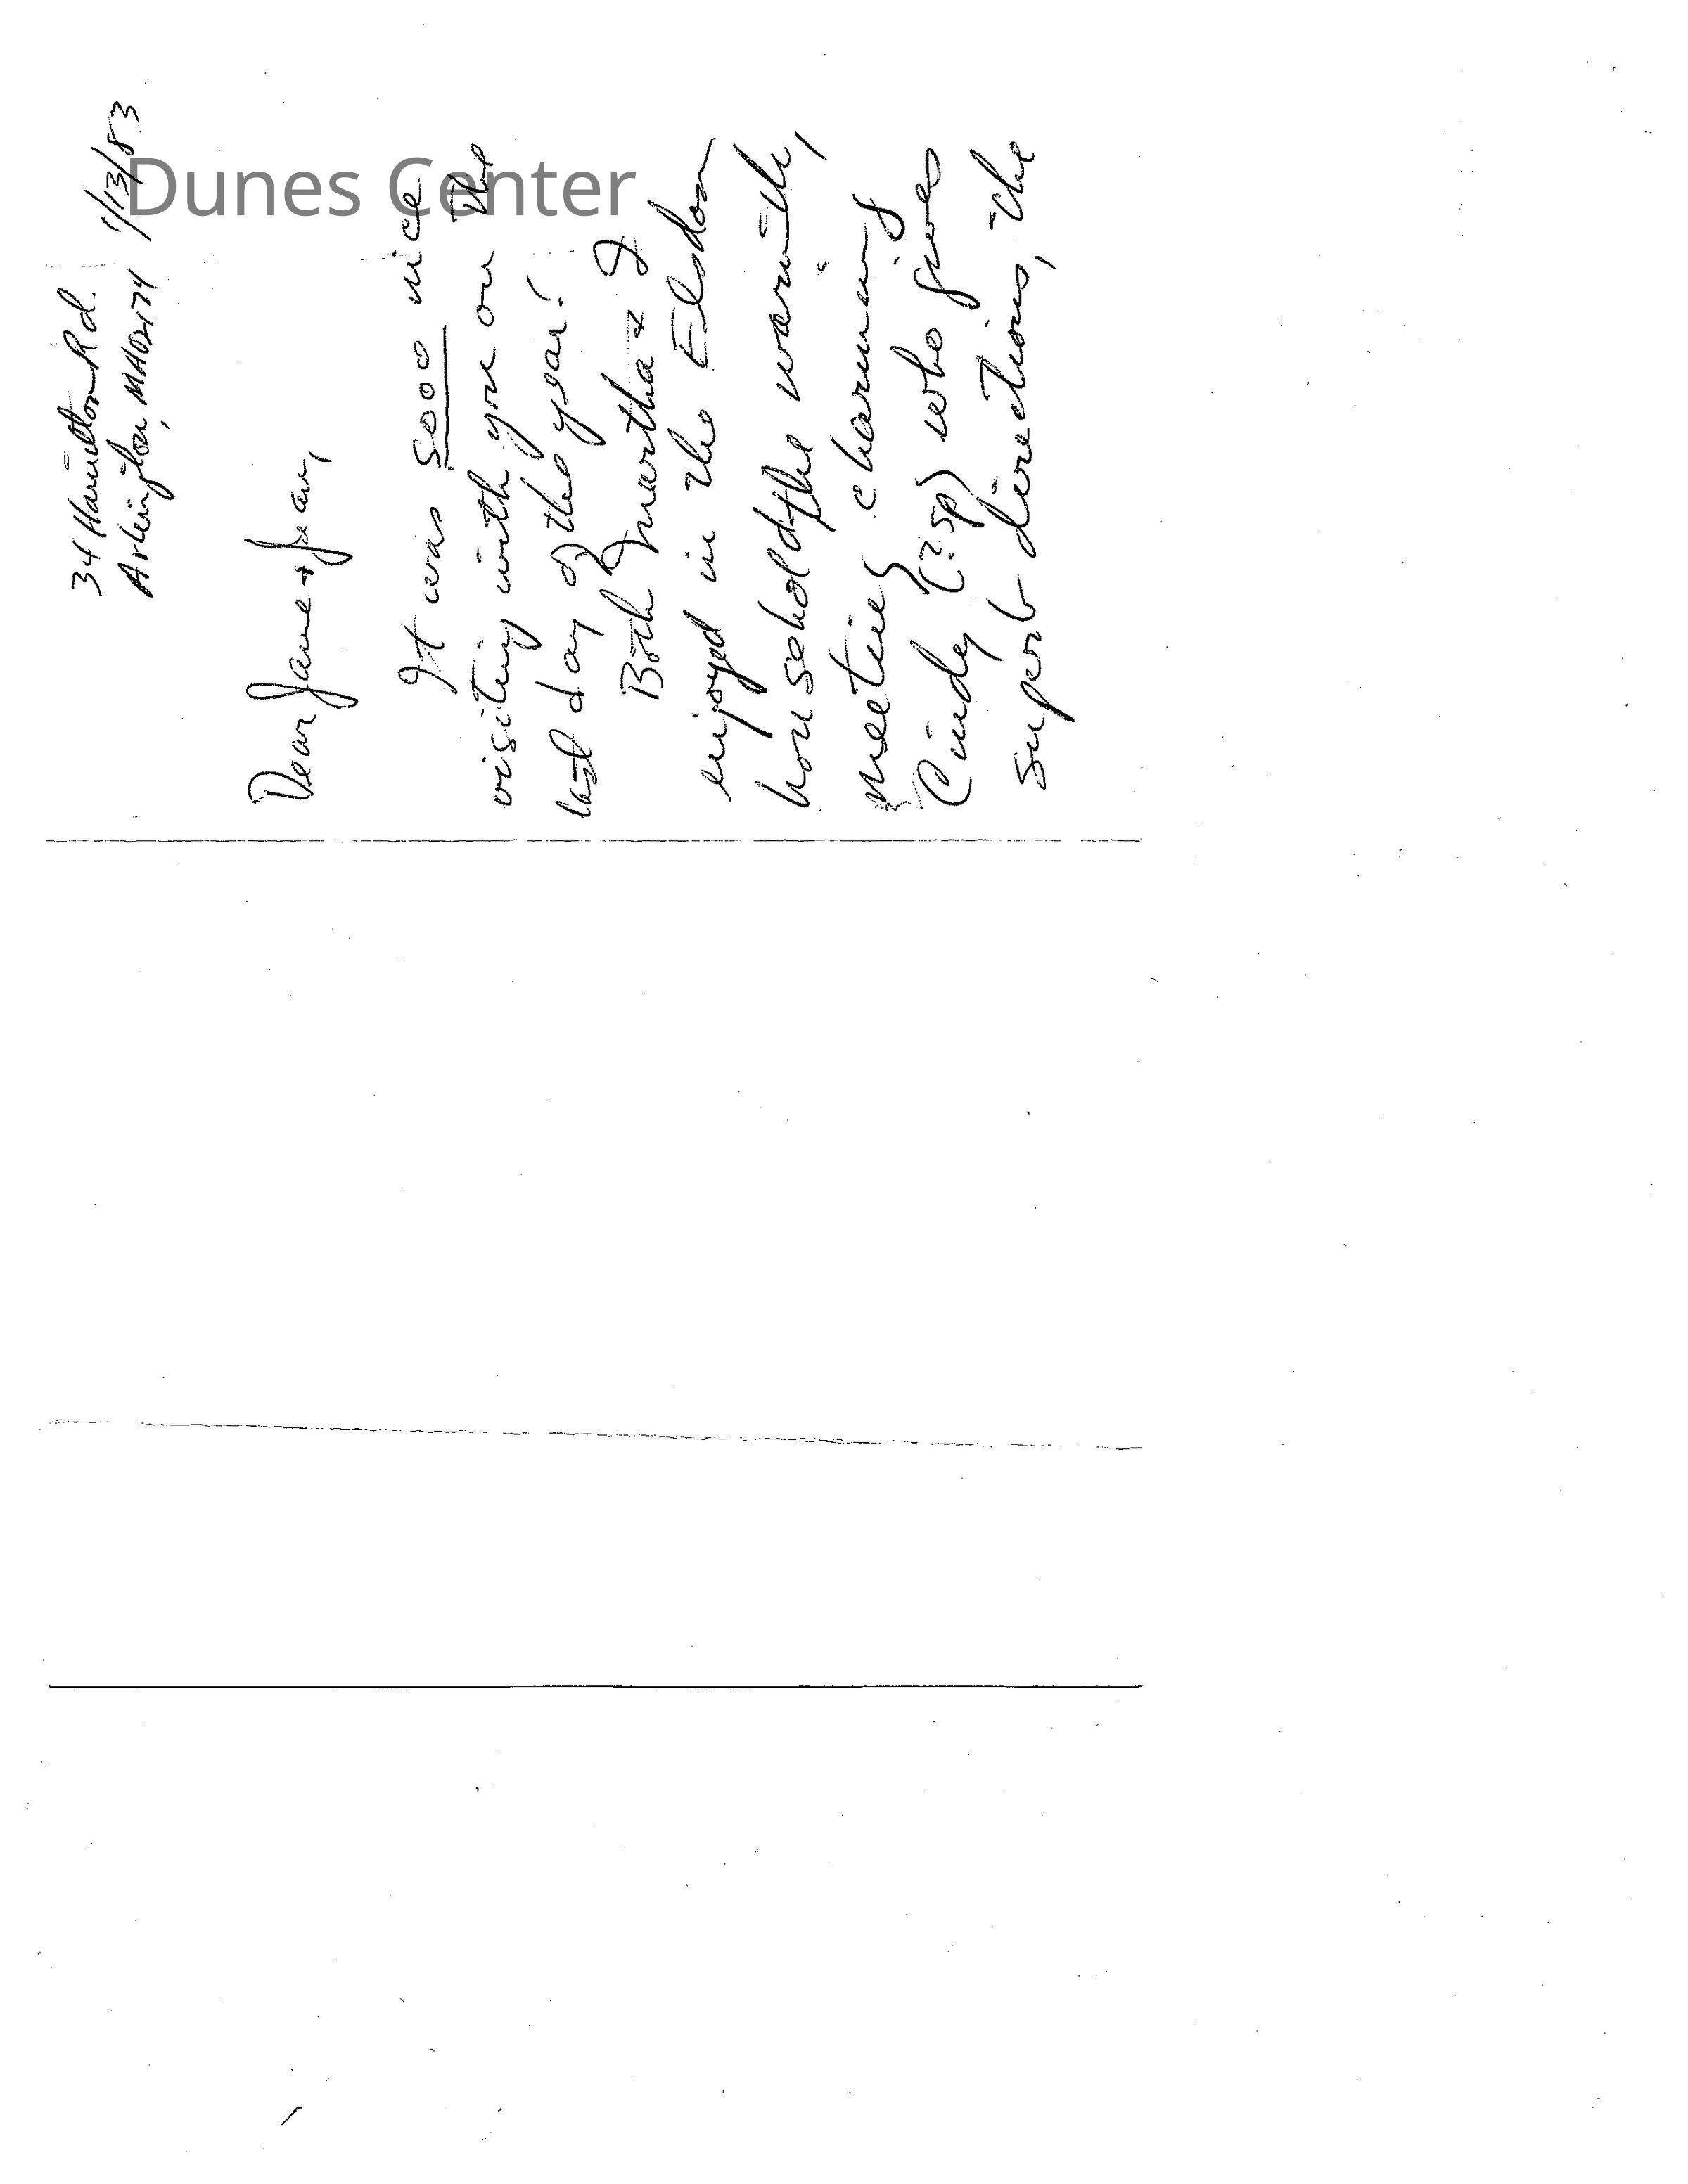 34 Hamilton Rd.
Arlington, MA 02174 1/13/83
Dunes Center
Dear Jane & Jean,
It was sooo nice
visiting with you on the
last day of the year!
Both Martha & I
enjoyed in the Elsdon
household the warmth,
meeting charming
Cindy (? sp) who gives
superb directions, the